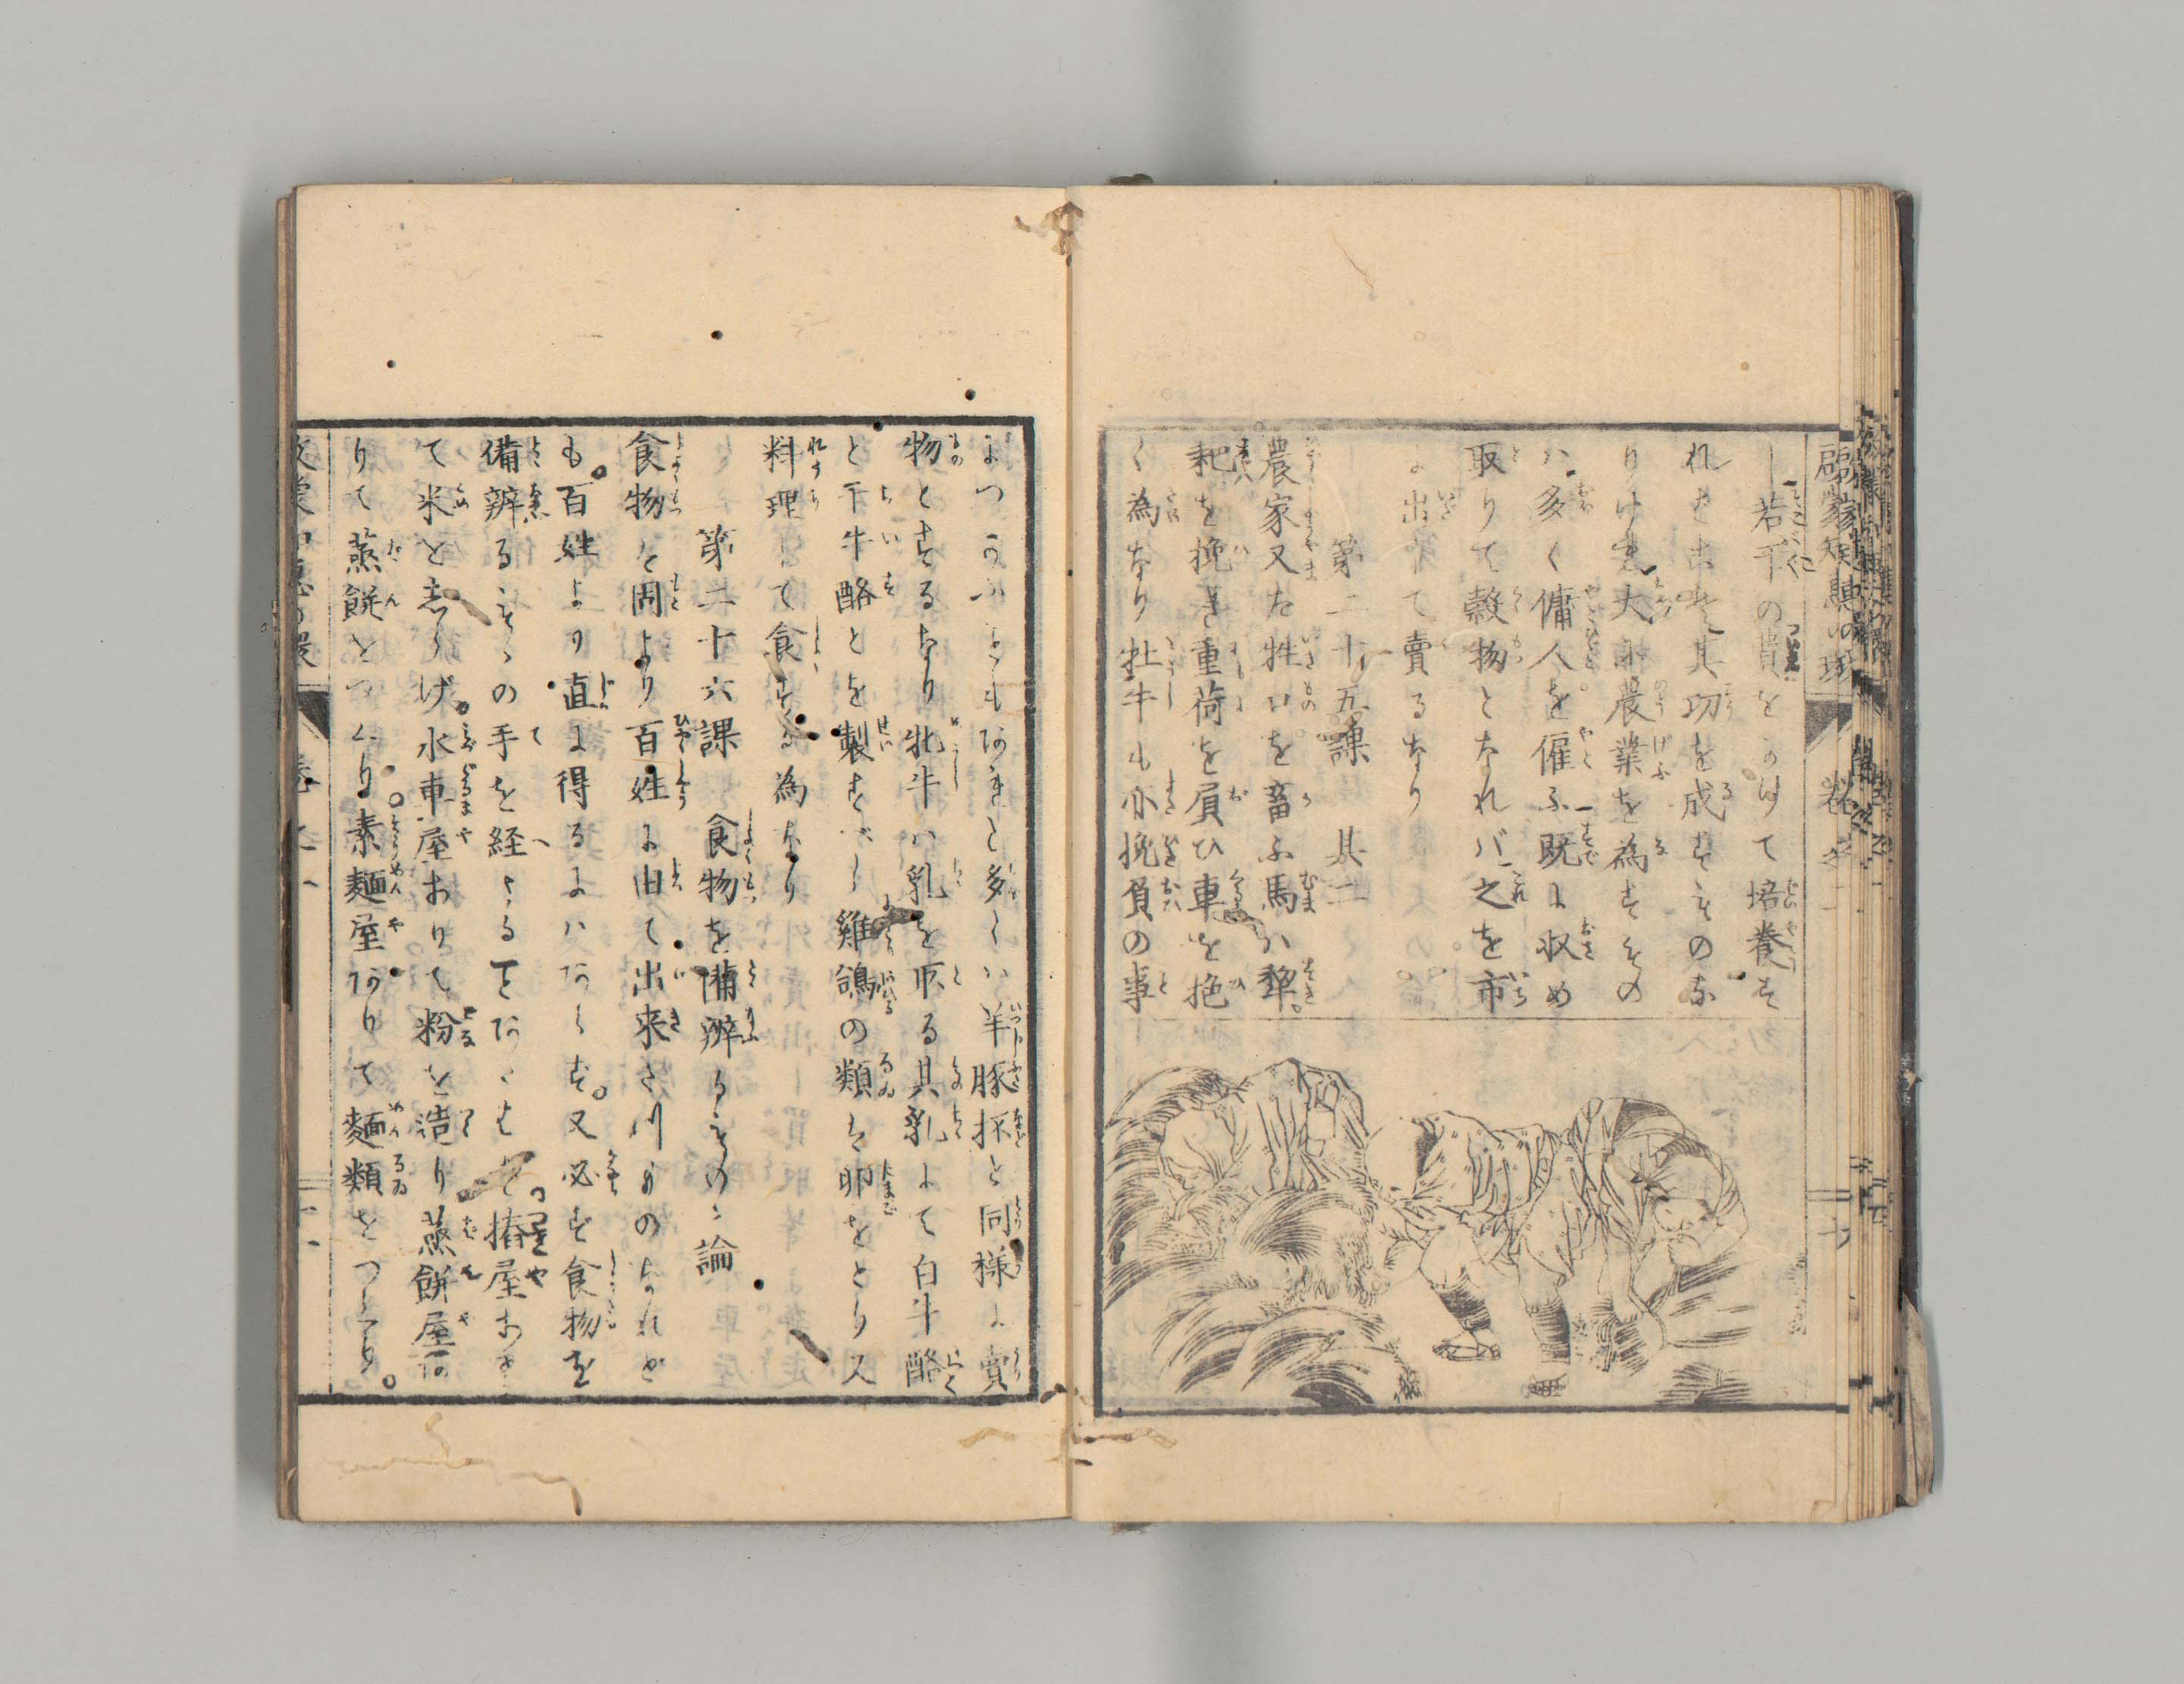 啓蒙知慧の環 巻之一
し若干の費をかけて培養す
れたこそ其功を成すものな
りけれ大小農業を為すもの
ハ多く傭人を雇ふ既に収め
取りて穀物となれバ之を市
に出して賣るなり
第二十五課 其二
農家又た牲ひを畜ふ馬ハ犂
耙を挽き重荷を負ひ車を挽
く為なり牡牛も亦挽負の事
につかふこともあれど多くハ羊豚抔と同様に賣
物とするなり牝牛ハ乳を取る其乳にて白牛酪
と干牛酪とを製すべし雞鴿の類は卵をとり又
料理して食する為なり
第二十六課 食物を備辨るものゝ論
食物を固より百姓に由て出来さりものなれど
も百姓より直に得るにハあらず又必ず食物を
備辨るものゝ手を経さることあらす先ツ搗屋あり
て米をしらげ水車屋ありて粉を造り蒸餅屋あ
りて蒸餅をつくり素麺屋ありて麺類をつくる